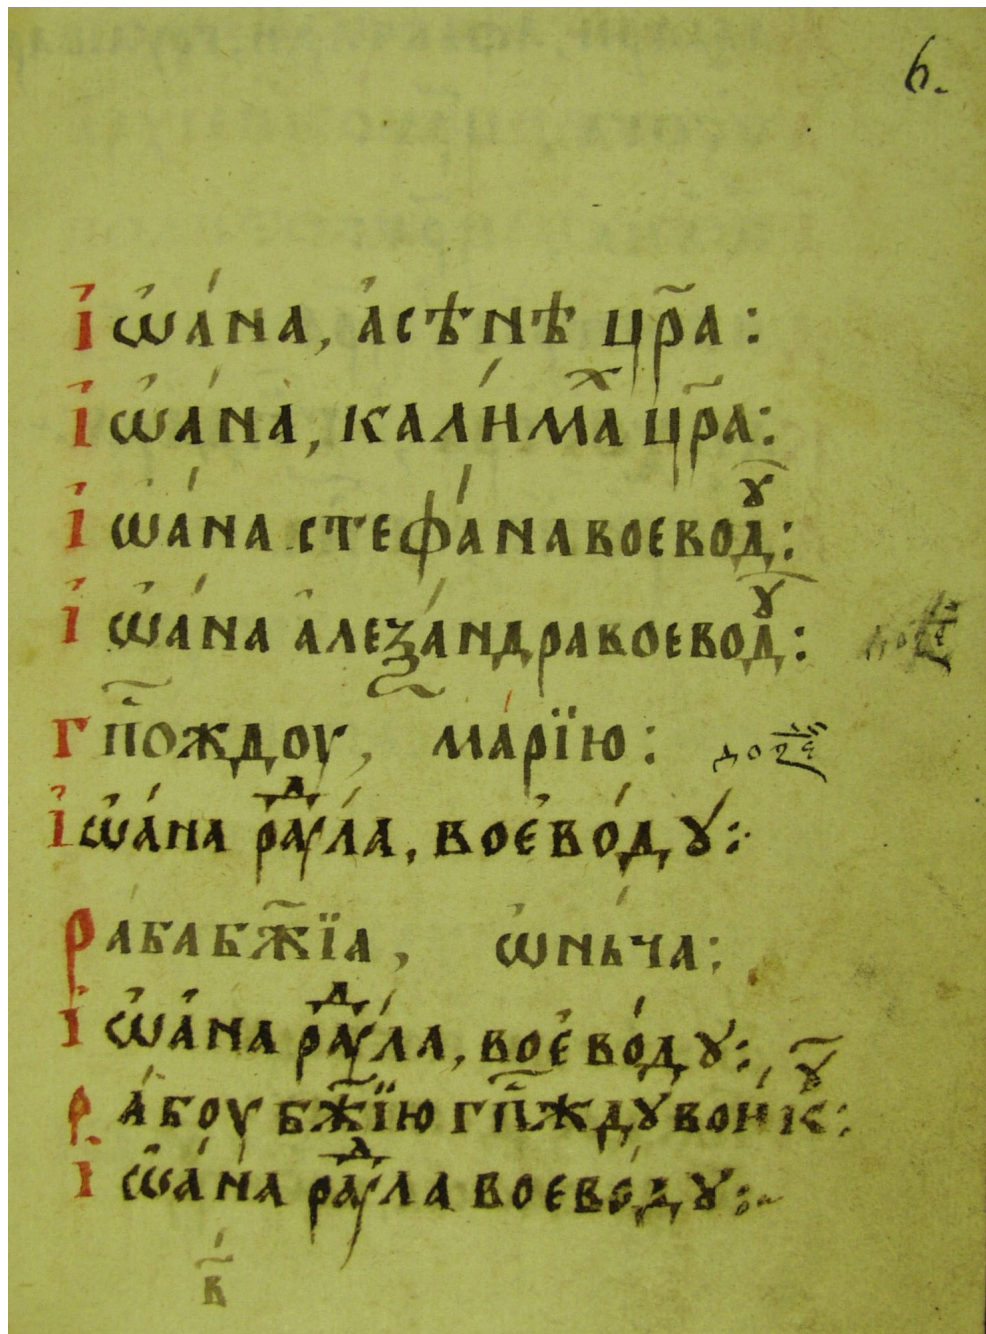 6.
І҆ѡ҆а́на, а҆сѣнѣ цр҃а :
І҆ѡ҆а́на, кали́маⷯ цр҃а :
І҆ѡ҆а́на стефа́на воеводꙋ :
І҆ѡ҆а́на але҆за́ндра воеводꙋ :
Гп҃ождоу, марі́ю :
І҆ѡ҆а́на раⷣꙋ́ла, вое҆во́дꙋ :
Раба бж҃їа, ѡ҆нь́ча :
І҆ѡ҆а́на раⷣꙋ́ла, вое҆во́дꙋ :
Ра́боу бж҃їю гп҃ждꙋ вои́кꙋ :
І҆ѡ҆а́на раⷣꙋла воево́дꙋ :
в҃